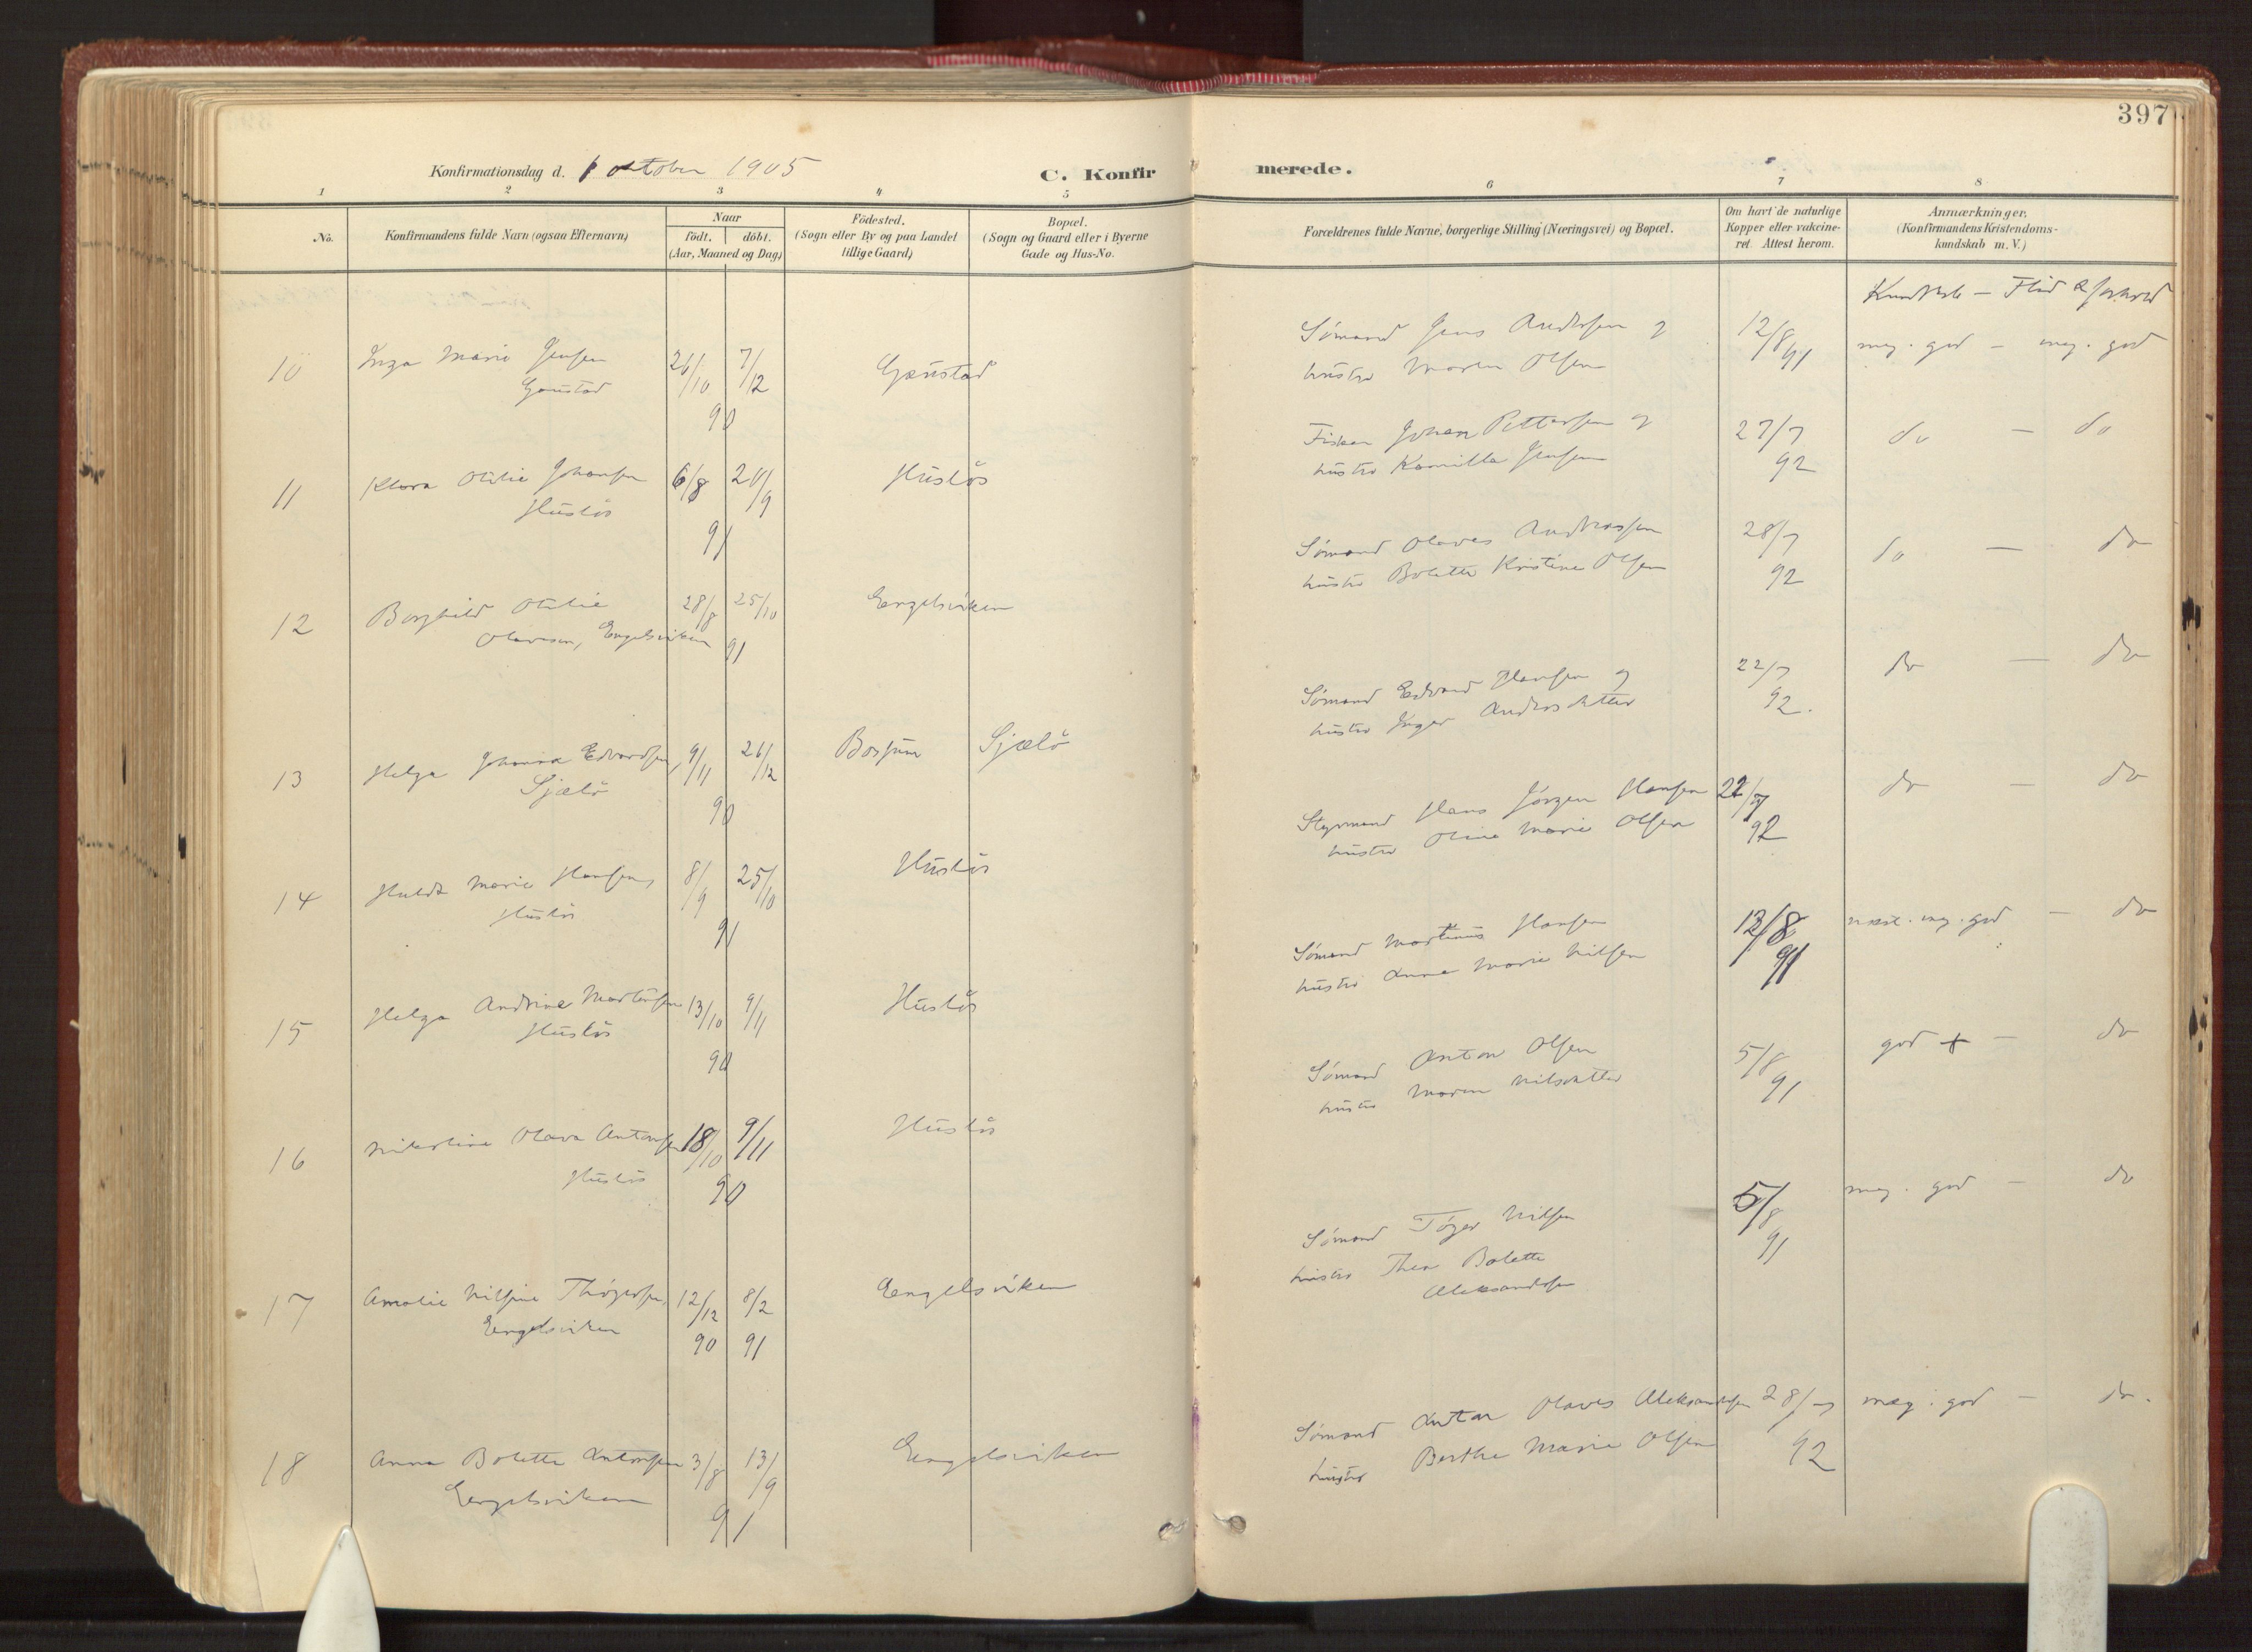 397
Konfirmationsdag d. 1 oktober 1905
C. Konfirmerede.
1 2 3 4 5 6 7 8
No.
Konfirmandens fulde Navn (ogsaa Efternavn)
Naar
födt. döbt.
(Aar, Maaned og Dag)
Födested.
(Sogn eller By og paa Landet
tillige Gaard)
Bopæl.
(Sogn og Gaard eller i Byerne
Gade og Hus-No.
Forældrenes fulde Navne, borgerlige Stilling (Næringsvei) og Bopæl.
Om havt de naturlige
Kopper eller vakcine-
ret. Attest herom.
Anmærkninger.
(Konfirmandens Kristendoms-
kundskab m. V.)
Kundskab – Flid & forhold
10 Inga Marie Jensen 26/10 7/12 Gaustad
Gaustad
90
Sømand Jens Andersen og 12/8 91 meg. god – meg. god
hustru Maren Olsen
11 Klara Otilie Johansen 6/8 20/9 Huslös
Huslös
91
Fisker Johan Pettersen og 27/7 92 do – do
hustru Kamilla Jensen
12 Borghild Otilie 28/8 25/10 Engelsviken
Olavesen, Engelsviken 91
Sømand Olaves Andreassen 28/7 92 do – do
hustru Bolette Kristine Olsen
13 Helga Johanna Edvardsen, 9/11 26/12 Sjælö
Sjælö
90
Sømand Edvard Hansen og 22/7 92. do – do
hustru Inger Andersdatter
14 Hulda Marie Hansen, 8/9 25/10 Huslös
Huslös
91
Styrmand Hans Jörgen Hansen 22/7 92 do – do
hustru Oline Marie Olsen
15 Helga Andrine Martinsen 13/10 9/11 Huslös
Huslös
90
Sømand Martinus Hansen 12/8 91 næst. meg. god – do
hustru Anna Marie Nilsen
16 Nikoline Olava Antonsen 18/10 9/11 Huslös
Huslös
90
Sømand Anton Olsen 5/8 91 god + – do
hustru Maren Nilsdatter
17 Amalie Nilsine Thögersen, 12/12 8/2 Engelsviken
Engelsviken
90 91
Sømand Töger Nilsen 5/8 91 meg. god – do
hustru Thea Bolette
Aleksandersen
18 Anna Bolette Antonsen 3/8 13/9 Engelsviken
Engelsviken
91
Sømand Anton Olaves Aleksandersen 28/7 92 meg. god – do.
hustru Berthe Marie Olsen